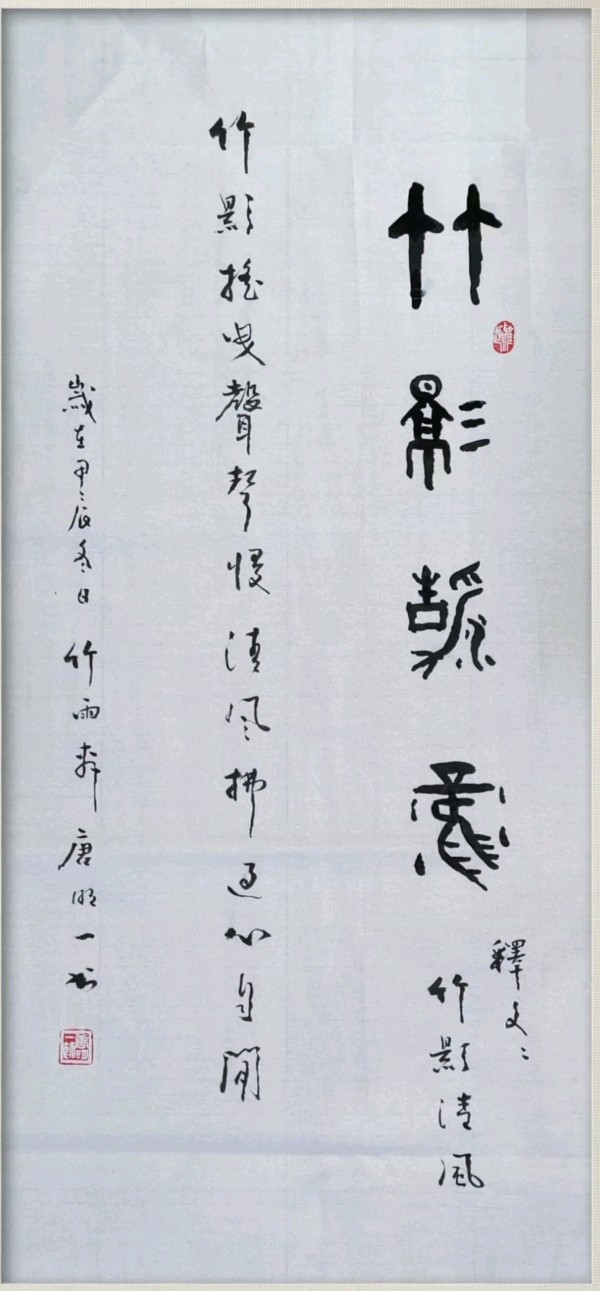 竹影清風
釋文:
竹影清風
竹影搖曳聲聲慢清風拂過心自閒
歲在甲辰冬日 竹雨軒 唐明一书